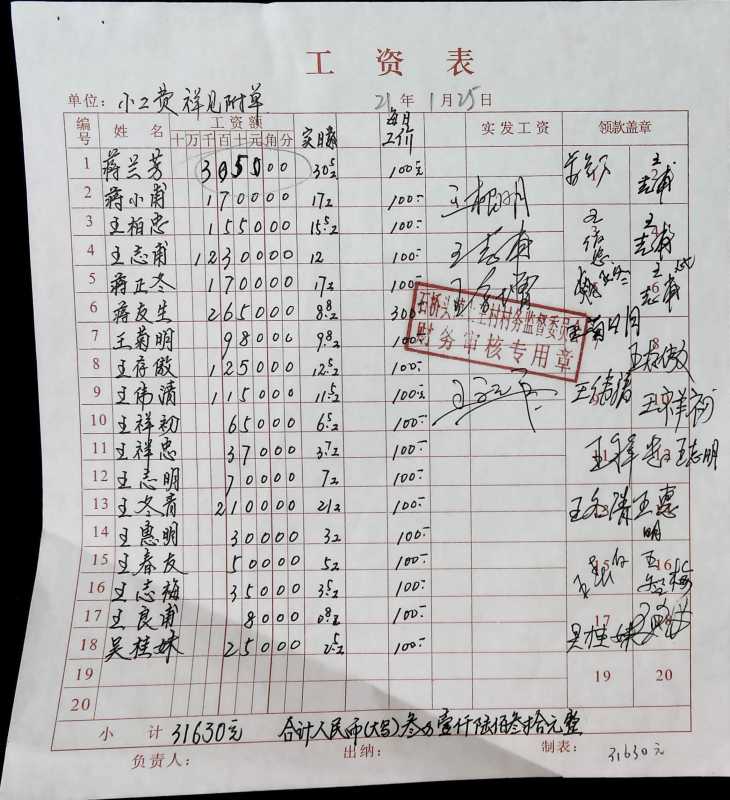 工资表
单位: 小工费 祥见附单 21年1月25日
编号 姓名 工资额 每日工价 实发工资 领款盖章
十 万 千 百 十 元 角 分
1 蒋兰芳 305000 30.5 100元
2 蒋小甫 170000 17 100.- 王根明
3 王柏忠 155000 15.5 100.-
4 王志甫 1230000 12 100.- 王志甫
5 蒋正冬 170000 17 100.-
6 蒋友生 265000 8.8 300
7 王菊明 98000 9.8 100.- 王菊明
8 王存傲 125000 12.5 100.-
9 王伟清 115000 11.5 100.- 王伟清 王祥初
10 王祥初 65000 6.5 100.-
11 王祥忠 37000 3.7 100.- 王祥忠 王志明
12 王志明 70000 7 100.-
13 王冬青 210000 21 100.- 王惠明
14 王惠明 30000 3 100.-
15 王春友 50000 5 100.-
16 王志梅 35000 3.5 100.-
17 王良甫 8000 0.8 100.-
18 吴桂妹 25000 2.5 100.- 吴桂妹
19 19 20
20
村务监督委员会
财务审核专用章
小计 31630元 合计人民币(大写)叁万壹仟陆佰叁拾元整
负责人: 出纳: 制表: 31630元